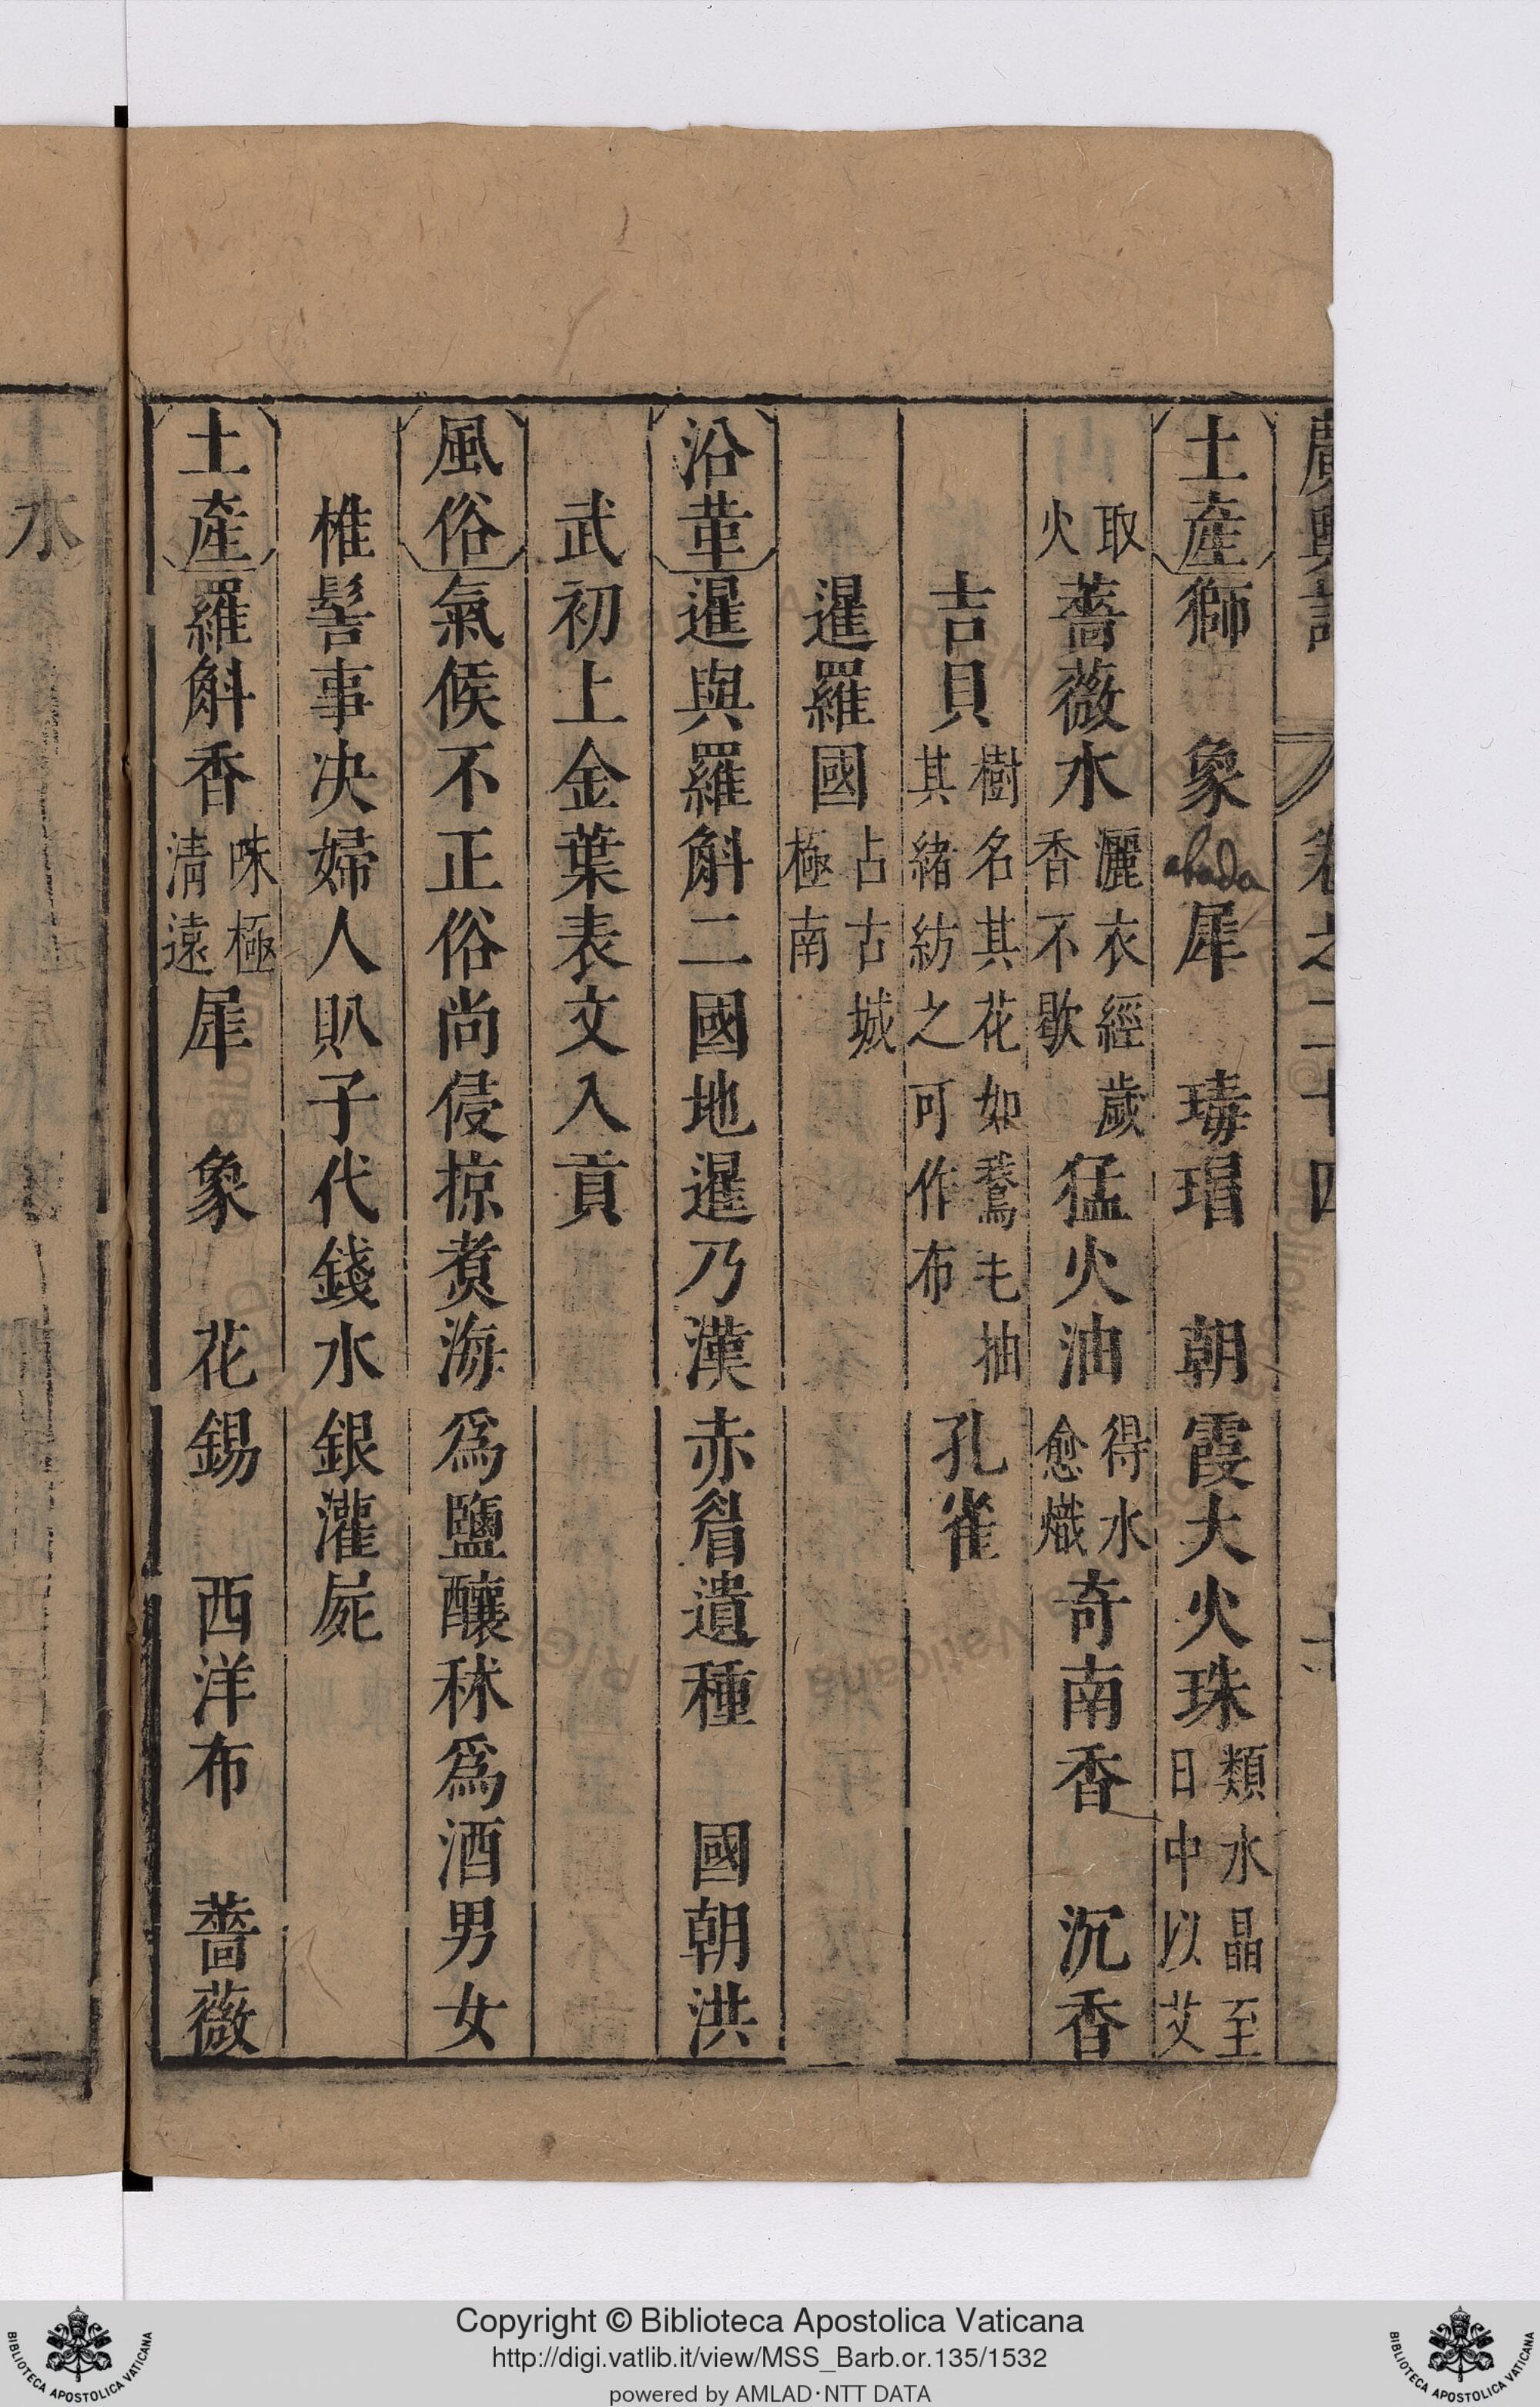 廣輿記 卷之二十四
土產獅 象 abada 犀 瑇瑁 朝霞大火珠類水晶至日中以艾
取火薔薇水灑衣經歲香不歇猛火油得水愈熾奇南香 沉香
吉貝樹名其花如鵞毛抽其緒紡之可作布孔雀
暹羅國占古城極南
沿革暹與羅斛二國地暹乃漢赤眉遺種 國朝洪
武初上金葉表文入貢
風俗氣候不正俗尚侵掠煑海爲鹽釀秫爲酒男女
椎髻事决婦人𧴩子代錢水銀灌屍
土產羅斛香味極清遠犀 象 花錫 西洋布 薔薇
水
Copyright © Biblioteca Apostolica Vaticana
http://digi.vatlib.it/view/MSS_Barb.or.135/1532
powered by AMLAD·NTT DATA
BIBLIOTECA APOSTOLICA VATICANA
BIBLIOTECA APOSTOLICA VATICANA